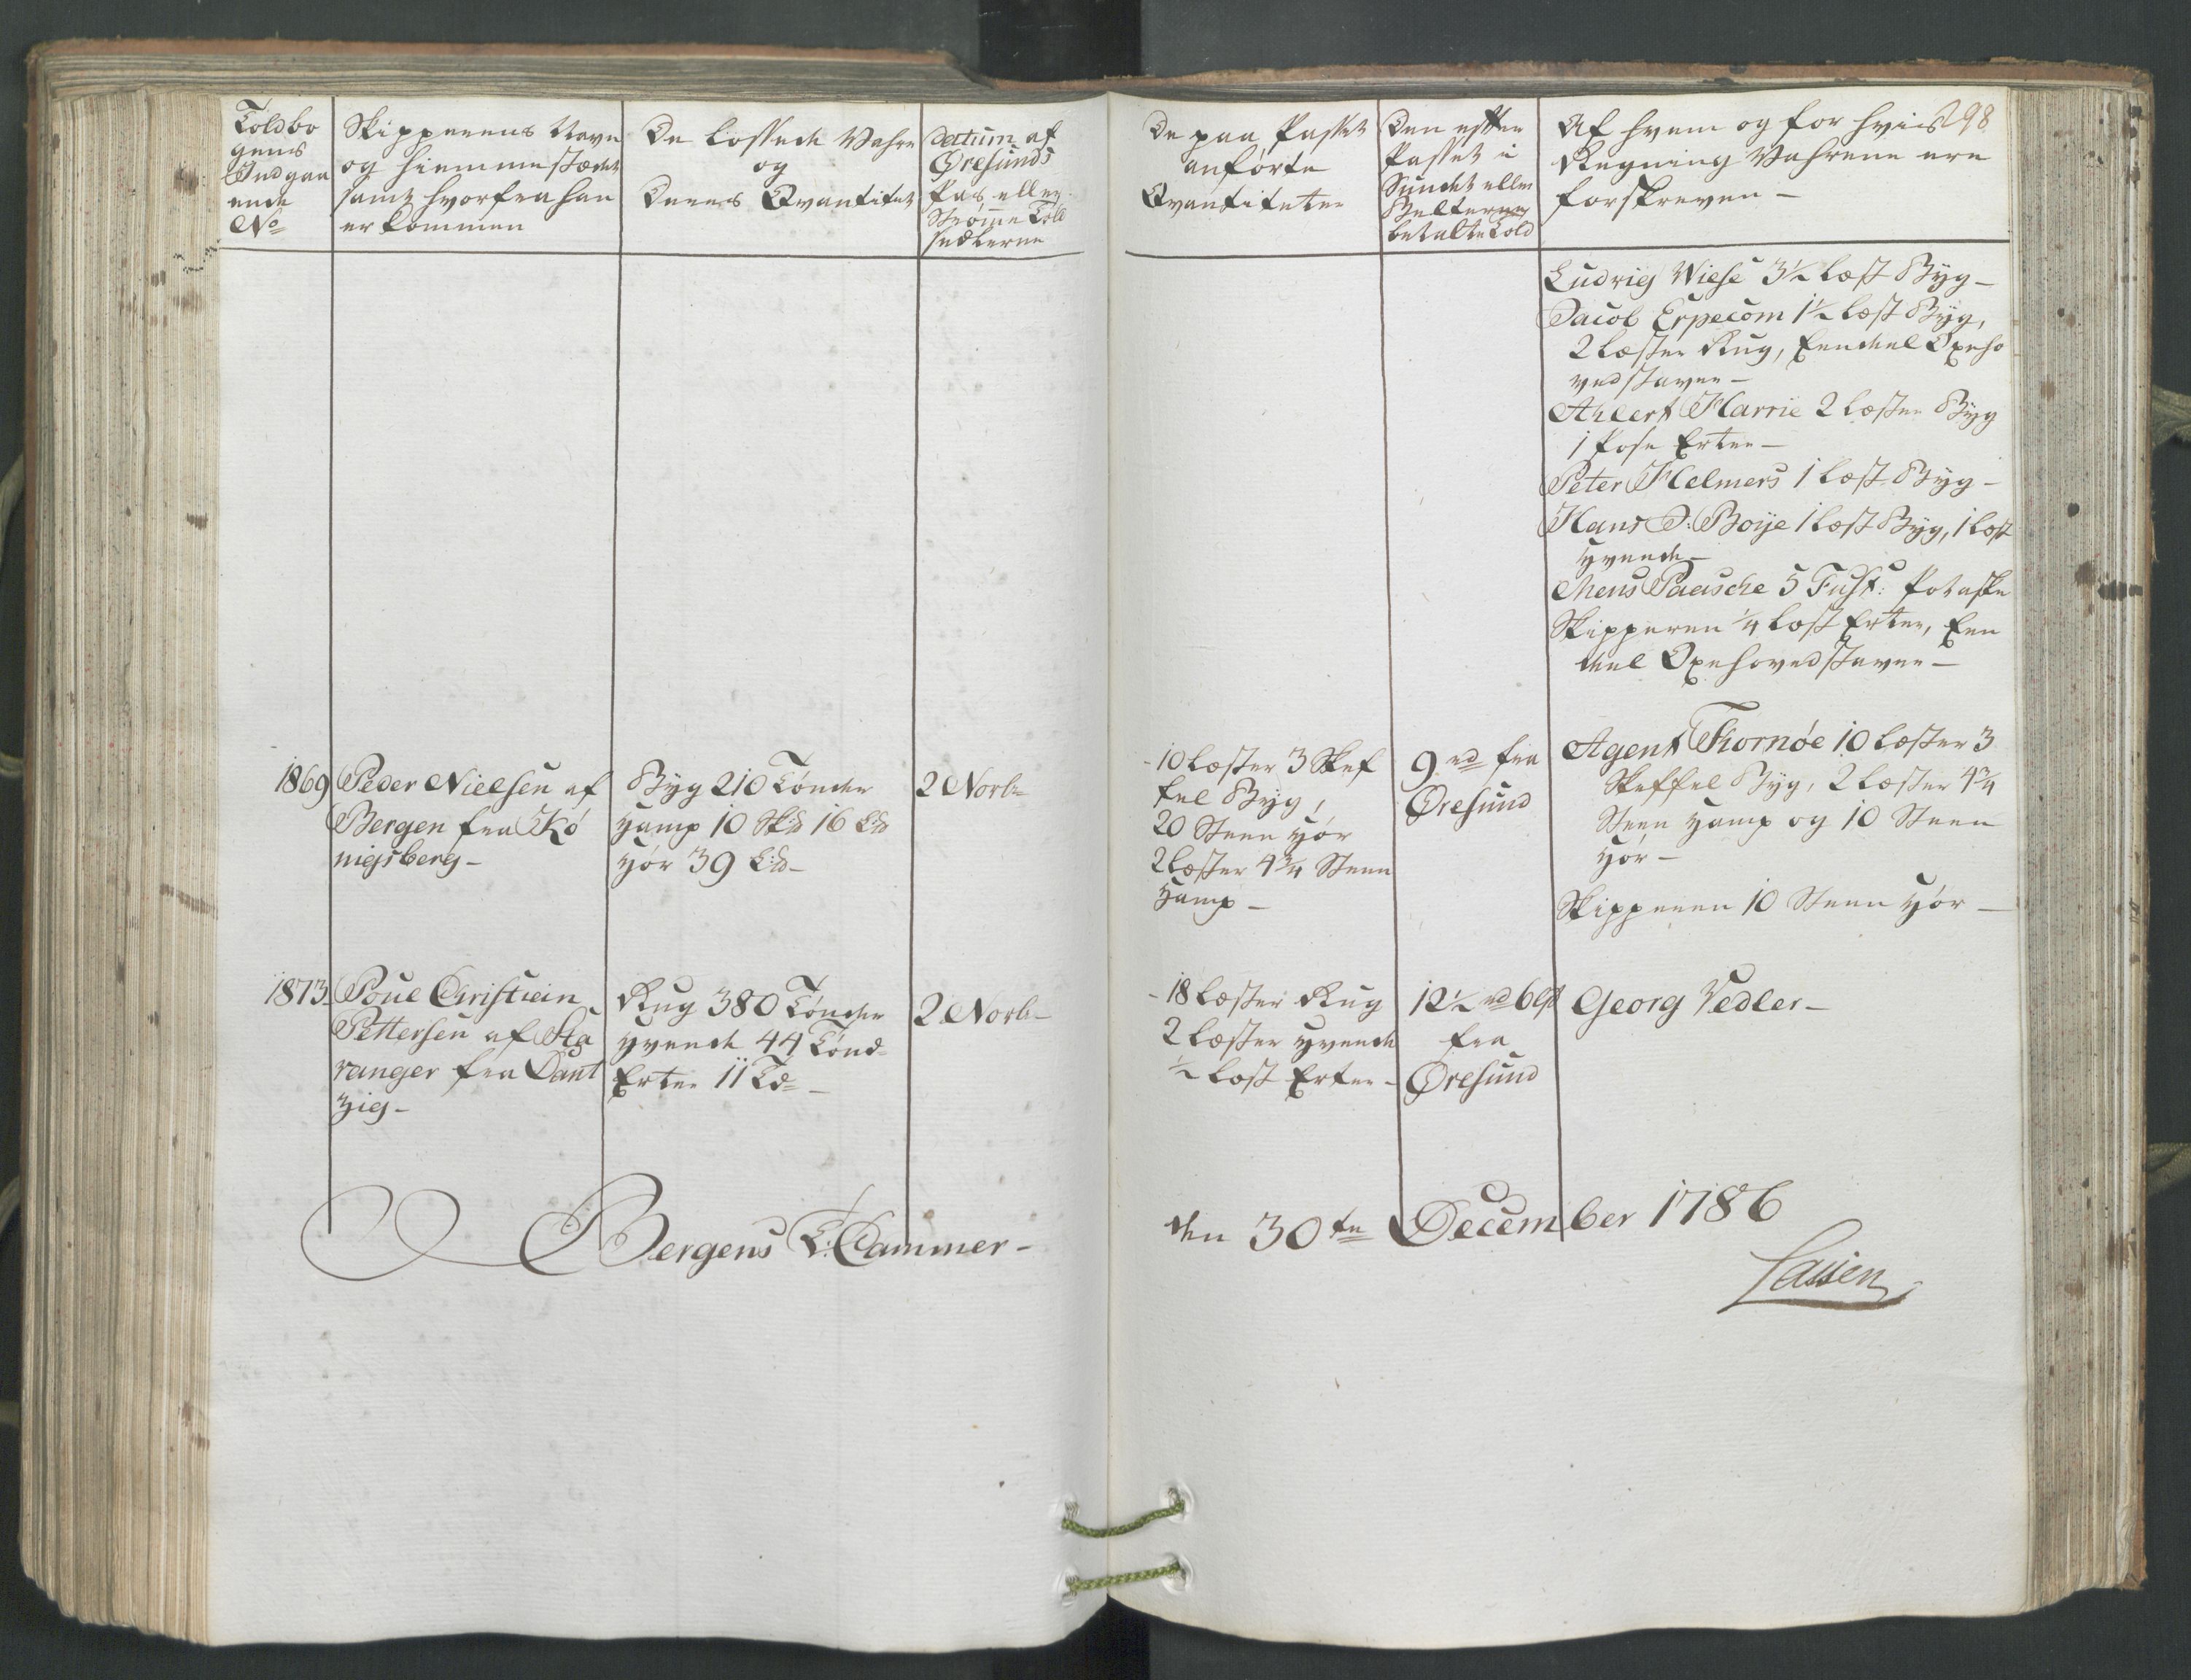 Toldbo
gens
Indgaa
ende
No
Skipperens Navn
og hiemmestædet
samt hvorfra han
er kommen
De lossede Vahre
og
Deres Qvantitet
Datum af
Øresunds
Pas eller
Strømme Told
sædlerne
De paa Passet
anførte
Qvantiteter
Den efter
Passet i
Sundet eller
Belterne
betalte Told
Af hvem og for hvis
Regning Vahrene ere
forskreven -
298
Ludvig Wiese 3 1/2 Læst Byg -
Jacob Erpecom 1 1/2 Læst Byg,
2 Læster Rug, Een deel Oxeho
vedstaver -
Ahlert Harrie 2 Læster Byg
1 Pose Erter -
Peter Helmers 1 Læst Byg -
Hans D: Boye 1 Læst Byg, 1 Læst
Hvede -
Mens Paasche 5 Fust: Potaske
Skipperen 1/4 Læst Erter, Een
deel Oxehovedstaver -
1869
Peder Nielsen af
Bergen fra Kö
nigsberg -
Byg 210 Tønder
Hamp 10 Sk℔ 16 L℔
Hør 39 L℔ -
2 Novbr
10 Læster 3 Skef
fel Byg,
20 Steen Hør
2 Læster 4 3/4 Steen
Hamp -
9 rd fra
Øresund
Agent Kornøe 10 Læster 3
Skeffel Byg, 2 Læster 4 3/4
Steen Hamp og 10 Steen
Hør -
Skipperen 10 Steen Hør -
1873
Poul Christian
Pettersen af Sta
vanger fra Dant
zig -
Rug 380 Tønder
Hvede 44 Tønd
Erter 11 Td -
2 Novbr -
18 Læster Rug
2 Læster Hvede
1/2 Læst Erter -
12 1/2 rd 6 lß
fra
Øresund
Georg Vedler -
Bergens T: Cammer -
den 30te December 1786
Lassen